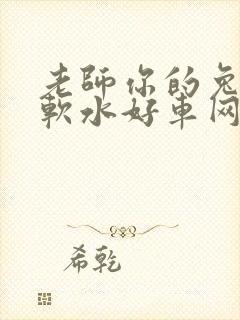 老師你的兔
軟水好車网
希乾